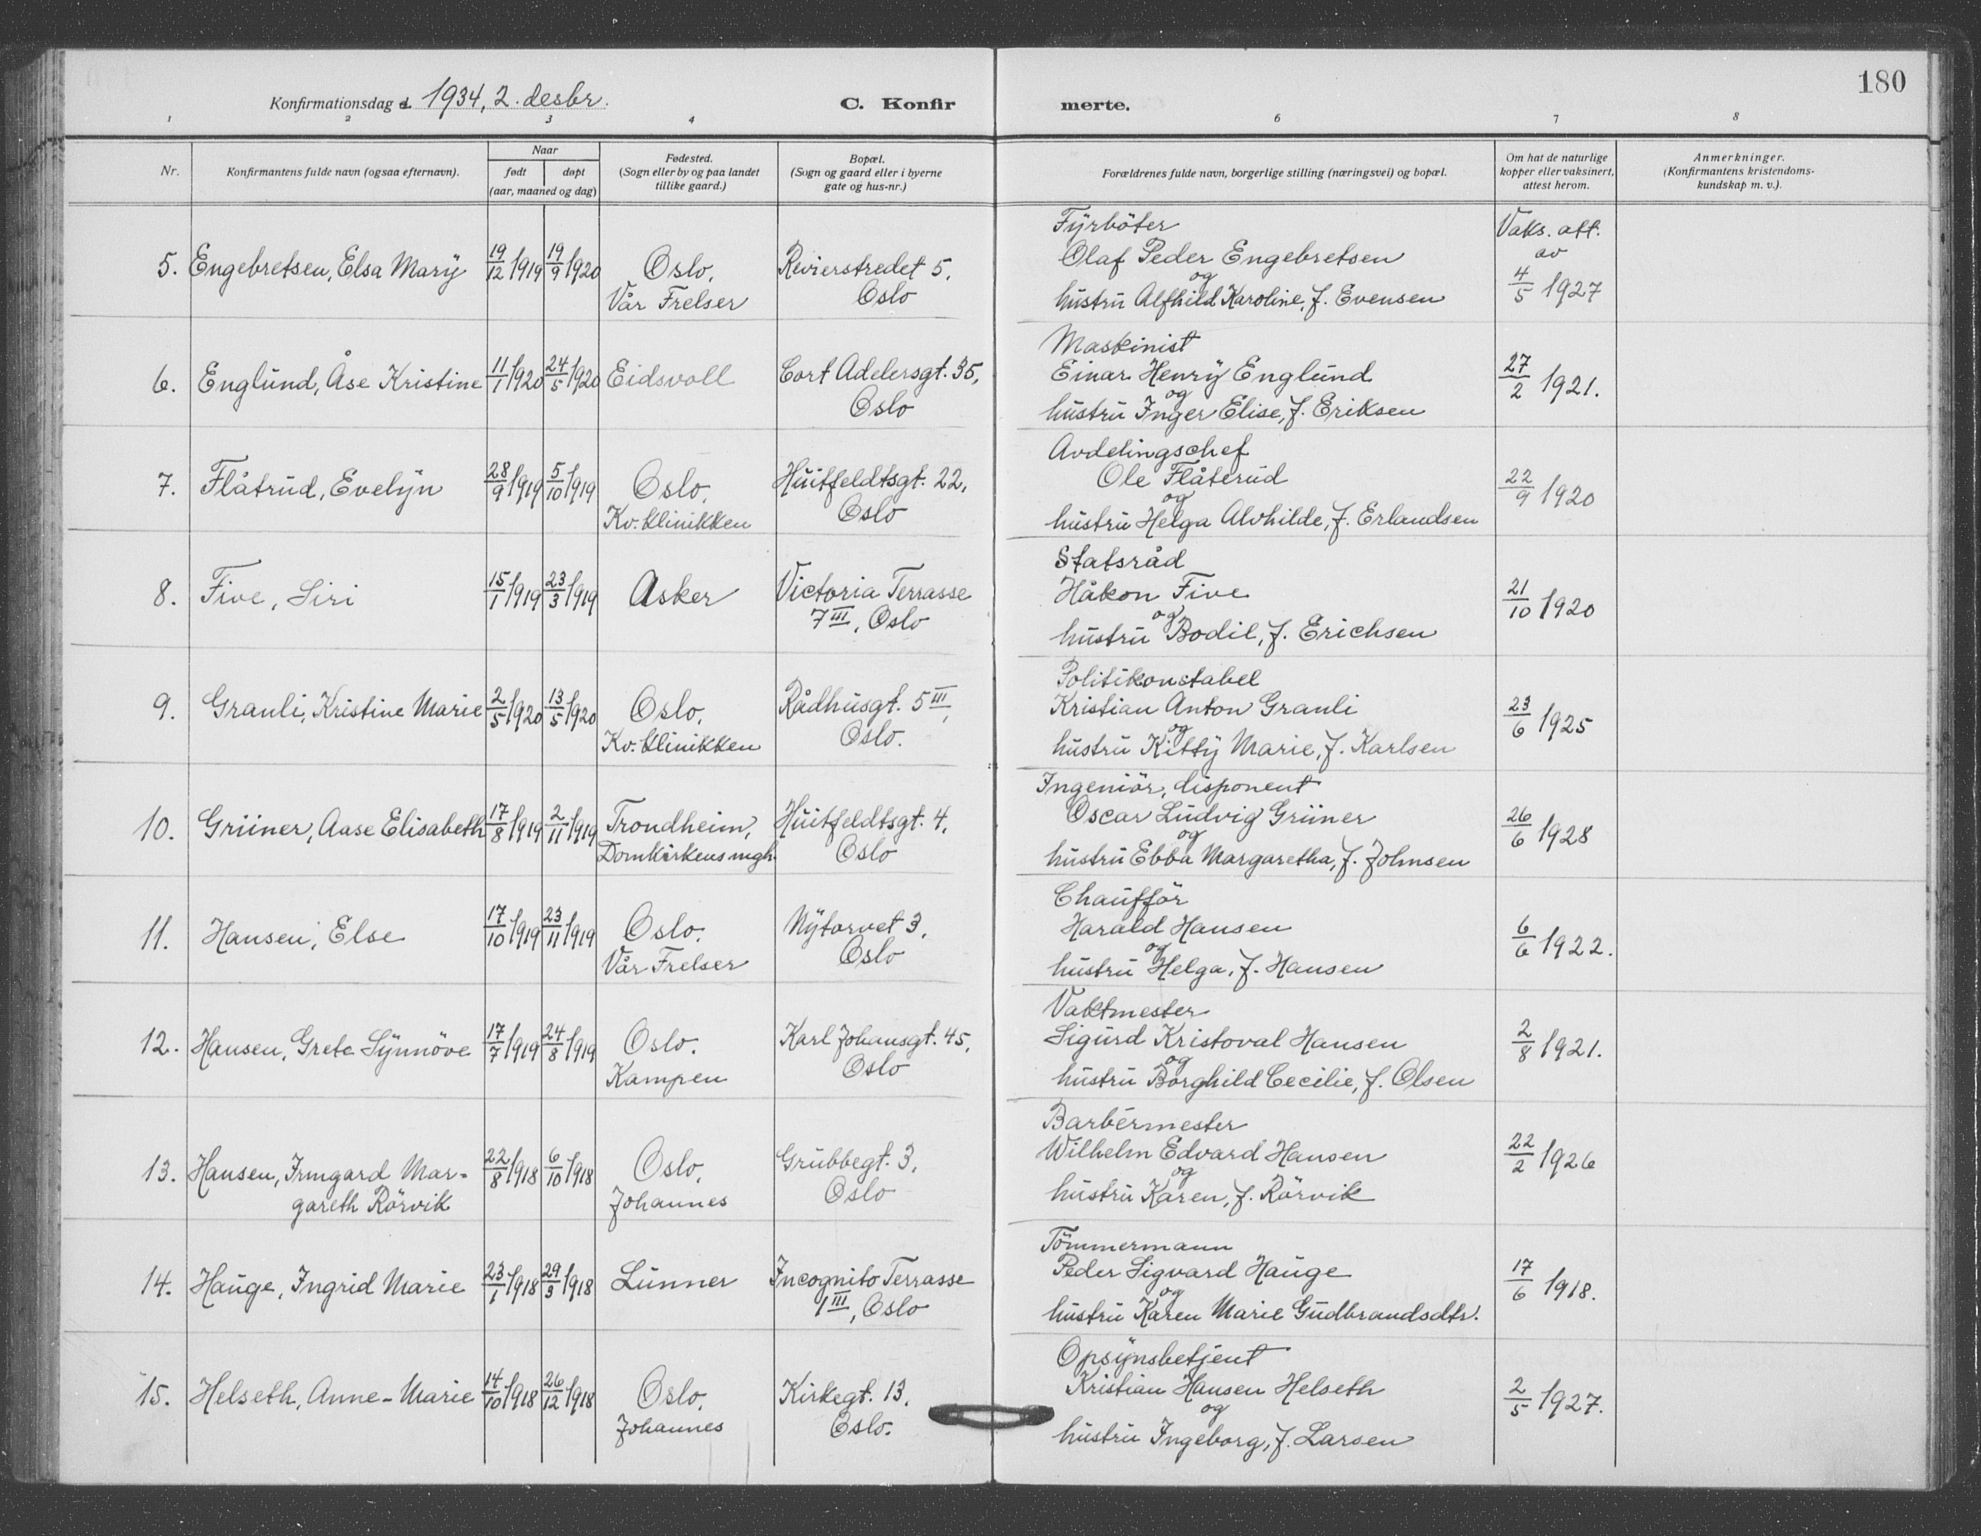 180
Konfirmationsdag d. 1934, 2. desbr.
C. Konfirmerte.
1 2 3 4 6 7 8
Nr.
Konfirmantens fulde navn (ogsaa efternavn).
Naar
født døpt
(aar, maaned og dag)
Fødested.
(Sogn eller by og paa landet
tillike gaard.)
Bopæl.
(Sogn og gaard eller i byerne
gate og hus-nr.)
Forældrenes fulde navn, borgerlige stilling (næringsvei) og bopæl.
Om hat de naturlige
kopper eller vaksinert,
attest herom.
Anmerkninger.
(Konfirmantens kristendoms-
kundskap m. v.)
5. Engebretsen, Elsa Mary 19/12 1919 19/9 1920 Oslo, Revierstredet 5,
Vår Frelser Oslo
Fyrböter
Olaf Peder Engebretsen
og
hustru Alfhild Karoline, f. Evensen
Vaks. att.
av
4/5 1927
6. Englund, Åse Kristine 11/1 1920 24/5 1920 Eidsvoll Cort Adelersgt. 35,
Oslo
Maskinist
Einar Henry Englund
og
hustru Inger Elise, f. Eriksen
27/2 1921.
7. Flåtrud, Evelyn 28/9 1919 5/10 1919 Oslo, Huitfeldtsgt. 22,
Kv. klinikken Oslo
Avdelingschef
Ole Flåterud
og
hustru Helga Alvhilde, f. Erlandsen
22/9 1920
8. Five, Siri 15/1 1919 23/3 1919 Asker Victoria Terrasse
7 III, Oslo
Statsråd
Håkon Five
og
hustru Bodil, f. Erichsen
21/10 1920
9. Granli, Kristine Marie 2/5 1920 13/5 1920 Oslo, Rådhusgt. 5 III,
Kv. klinikken Oslo.
Politikonstabel
Kristian Anton Granli
og
hustru Kitty Marie, f. Karlsen
23/6 1925
10. Grüner, Aase Elisabeth 17/8 1919 2/11 1919 Trondheim, Huitfeldtsgt. 4,
Domkirkens mgh. Oslo
Ingeniör, disponent
Oscar Ludvig Grüner
og
hustru Ebba Margaretha, f. Johnsen
26/6 1928
11. Hansen, Else 17/10 1919 23/11 1919 Oslo, Nytorvet 3,
Vår Frelser Oslo
Chaufför
Harald Hansen
og
hustru Helga, f. Hansen
6/6 1922.
12. Hansen, Grete Synnöve 17/7 1919 24/8 1919 Oslo. Karl Johansgt. 45,
Kampen Oslo
Vaktmester
Sigurd Kristoval Hansen
og
hustru Borghild Cecilie, f. Olsen
2/8 1921.
13. Hansen, Irmgard Mar- 22/8 1918 6/10 1918 Oslo, Grubbegt. 3,
gareth Rörvik Johannes Oslo
Barbérmester
Wilhelm Edvard Hansen
og
hustru Karen, f. Rörvik
22/2 1926
14. Hauge, Ingrid Marie 23/1 1918 29/3 1918 Lunner Incognito Terrasse
1 III, Oslo
Tömmermann
Peder Sigvard Hauge
og
hustru Karen Marie Gudbrandsdtr.
17/6 1918.
15. Helseth, Anne-Marie 14/10 1918 26/12 1918 Oslo, Kirkegt. 13,
Johannes Oslo.
Opsynsbetjent
Kristian Hansen Helseth
og
hustru Ingeborg, f. Larsen
2/5 1927.